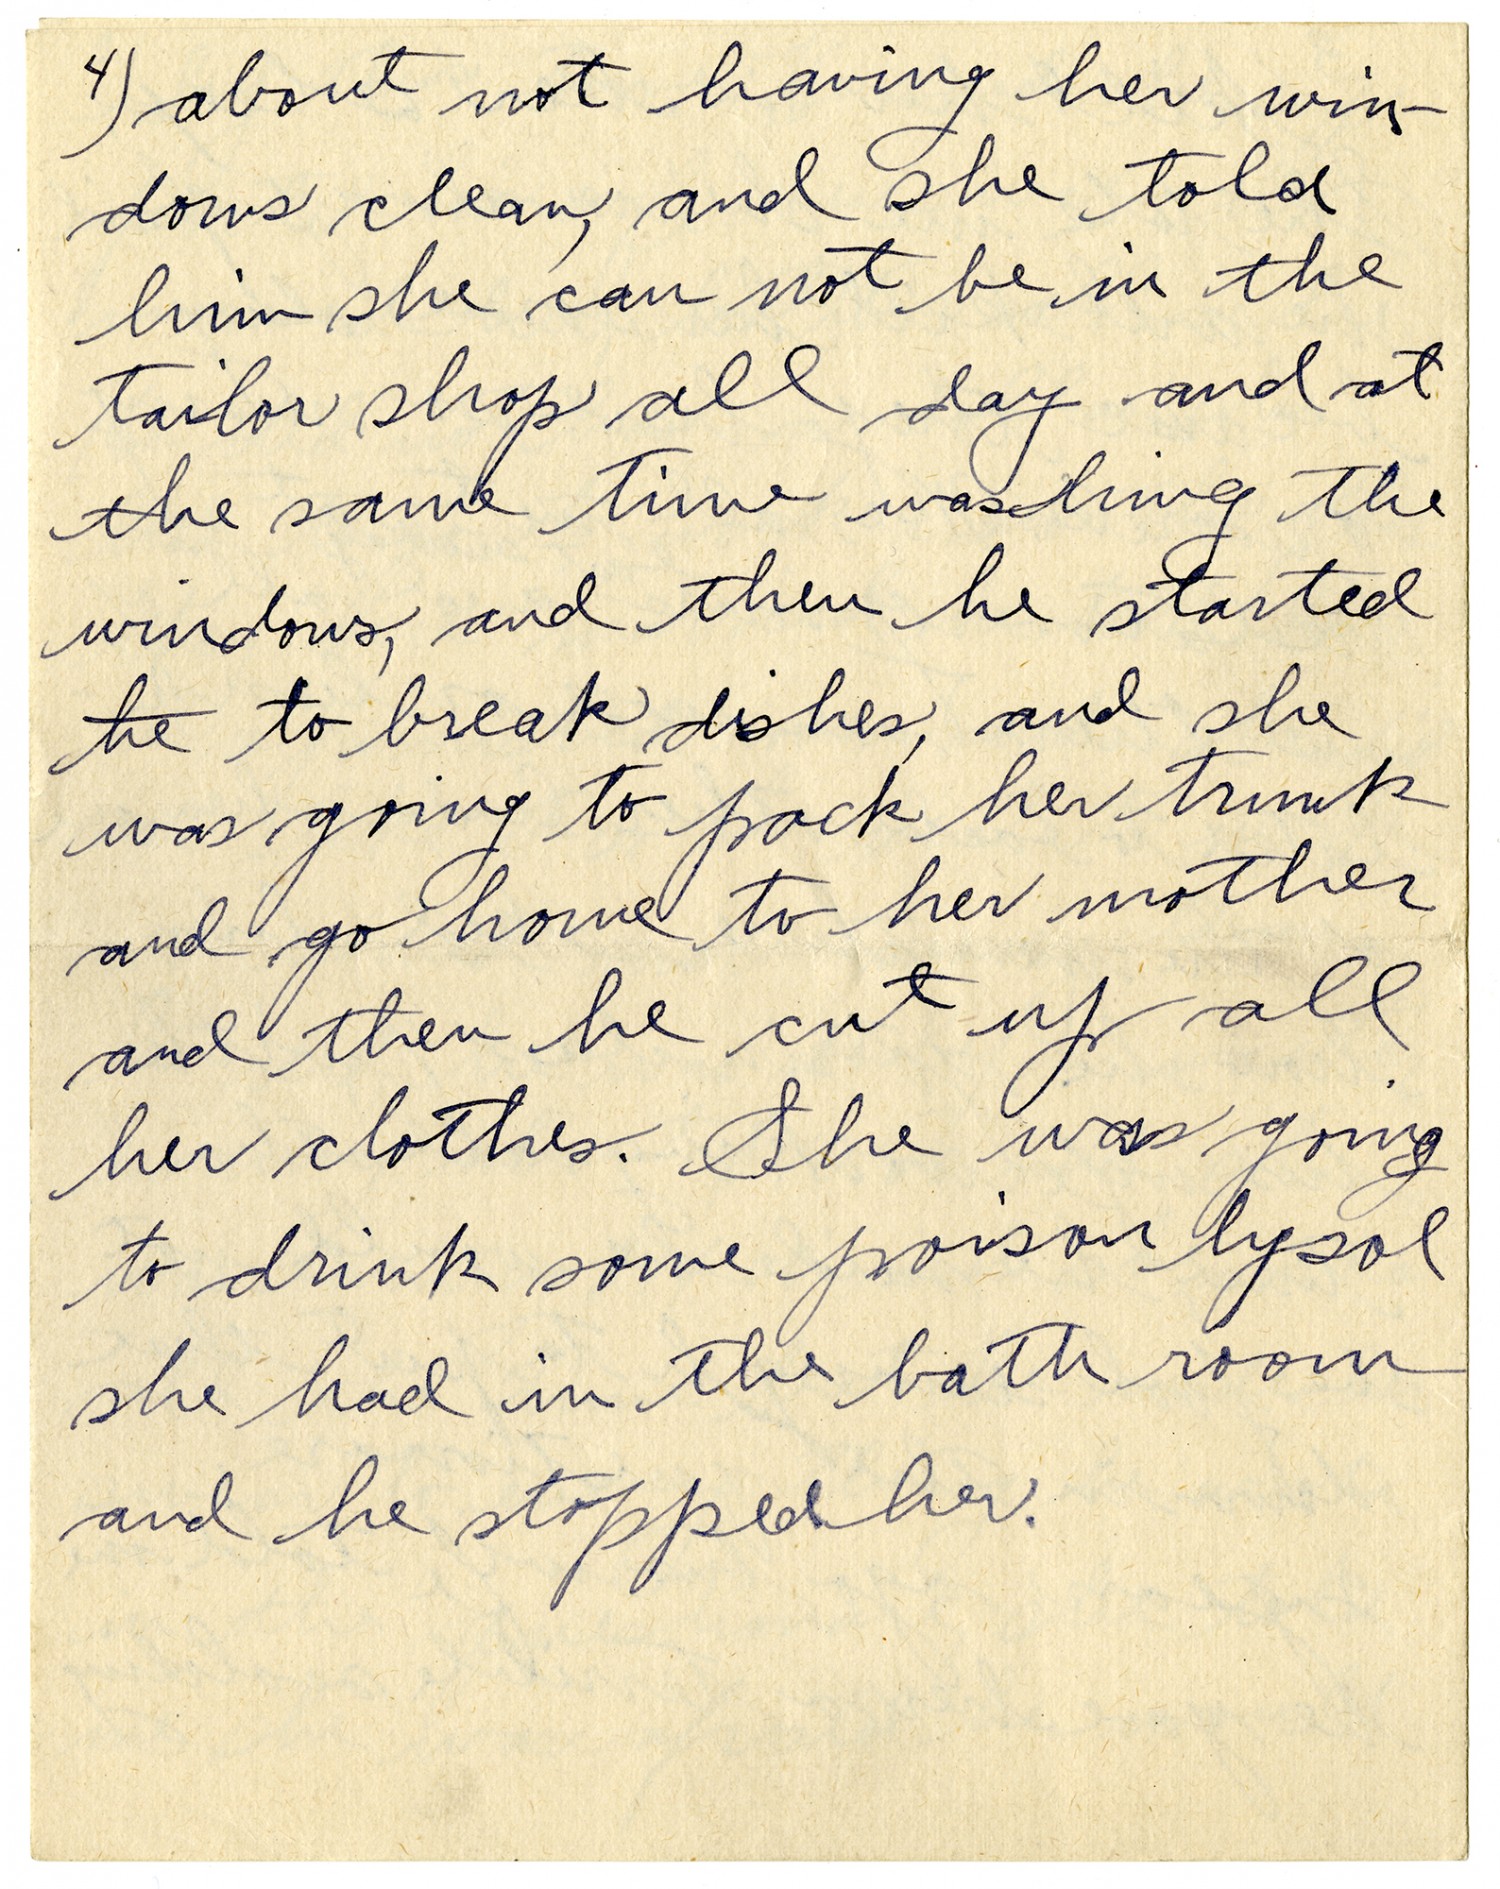 4) about not having her win-
dows clean, and she told
him she can not be in the
tailor shop all day and at
the same time washing the
windows, and then he started
he to break dishes, and she
was going to pack her trunk
and go home to her mother
and then he cut up all
her clothes. She was going
to drink some poison lysol
she had in the bath room
and he stopped her.